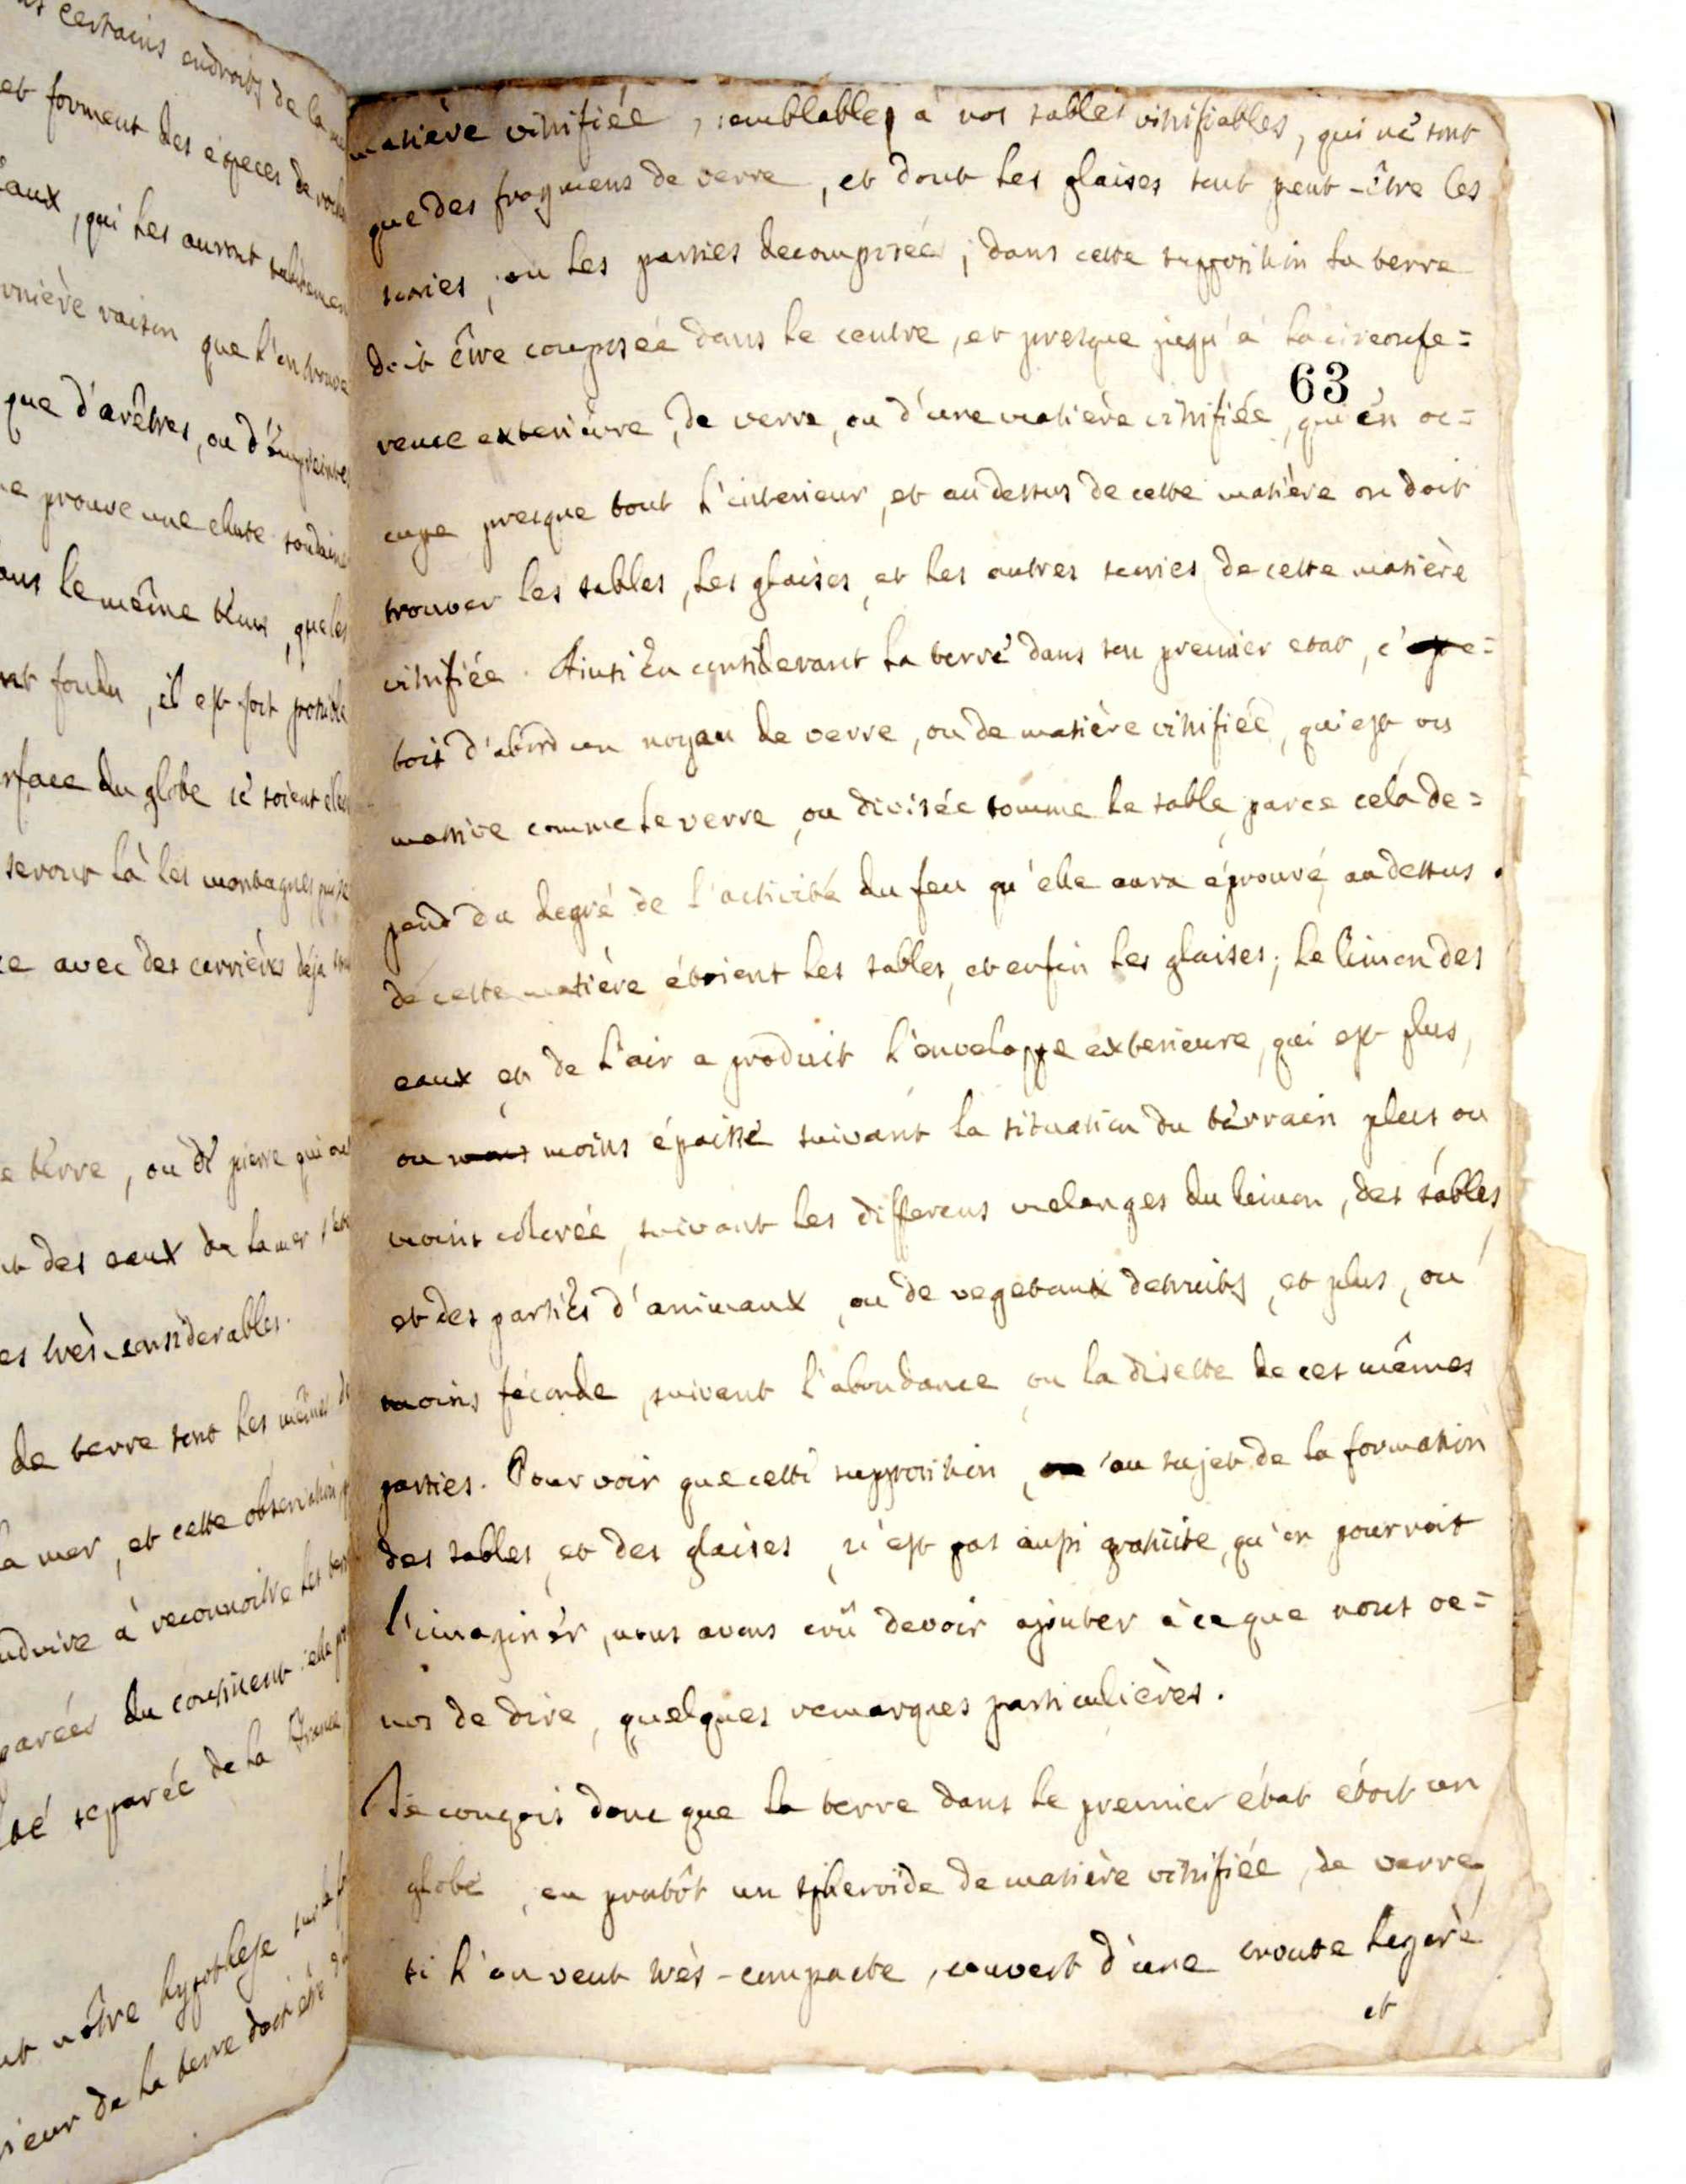 certains endroits de la
et forment des éspeces de
eaux, qui les auront
rnière raison que l'on trouve
que d'arêtres, ou d'émpreintes
e prouve une chute soudaine
ous le même tems, que les
nt fondu, il est fort possible
rface du globe ce soient elles
seront là les montagnes
ce avec des carrières déja
e terre, ou de pierre qui
nt des eaux de la mer
es très-considerables.
de terre sont les mêmes
la mer, et cette observation
nduire à reconnoitre les
parées du continent elle
té separée de la France
nt nôtre hypothese sur
rieur de la terre doit être
matière vitrifiée, semblable à nos sables vitrifiables, qui ne sont
que des fragmens de verre, et dont les glaises sont peut-être les
scories, ou les parties decomposées; dans cette supposition la terre
doit être composée dans le centre, et presque jusqu'à la circonfe=
63
rence exterieure, de verre, ou d'une matière vitrifiée, qui en oc=
cupe presque tout l'interieur, et au dessus de cette matière on doit
trouver les sables, les glaises, et les autres scories de cette matière
vitrifiée. Ainsi en considerant la terre dans son premier etat, c' e=
toit d'abord un noyau de verre, ou de matière vitrifiée, qui est ou
massive comme le verre, ou divisée comme le sable, parce cela de=
pend du degré de l'activité du feu qu'elle aura éprouvé, au dessus
de cette matière étoient les sables, et enfin les glaises; le limon des
eaux et de l'air a produit l'enveloppe exterieure, qui est plus,
ou moins épaisse suivant la situation du terrain plus ou
moins colorée, suivant les differens melanges du limon, des sables
et des parties d'animaux, ou de vegetaux detruits, et plus, ou
moins féconde, suivent l'abondance ou la disette de ces mêmes
parties. Pour voir que cette supposition, au sujet de la formation
des sables, et des glaises, n'est pas aussi gratuite, qu'on pourroit
l'imaginer, nous avons crû devoir ajouter à ce que nous ve=
nos de dire, quelques remarques particulières.
Je conçois donc que la terre dans le premier état étoit un
globe, ou protôt un spheroïde de matière vitrifiée, de verre
si l'on veut très-compacte, couvert d'une croute legere
et